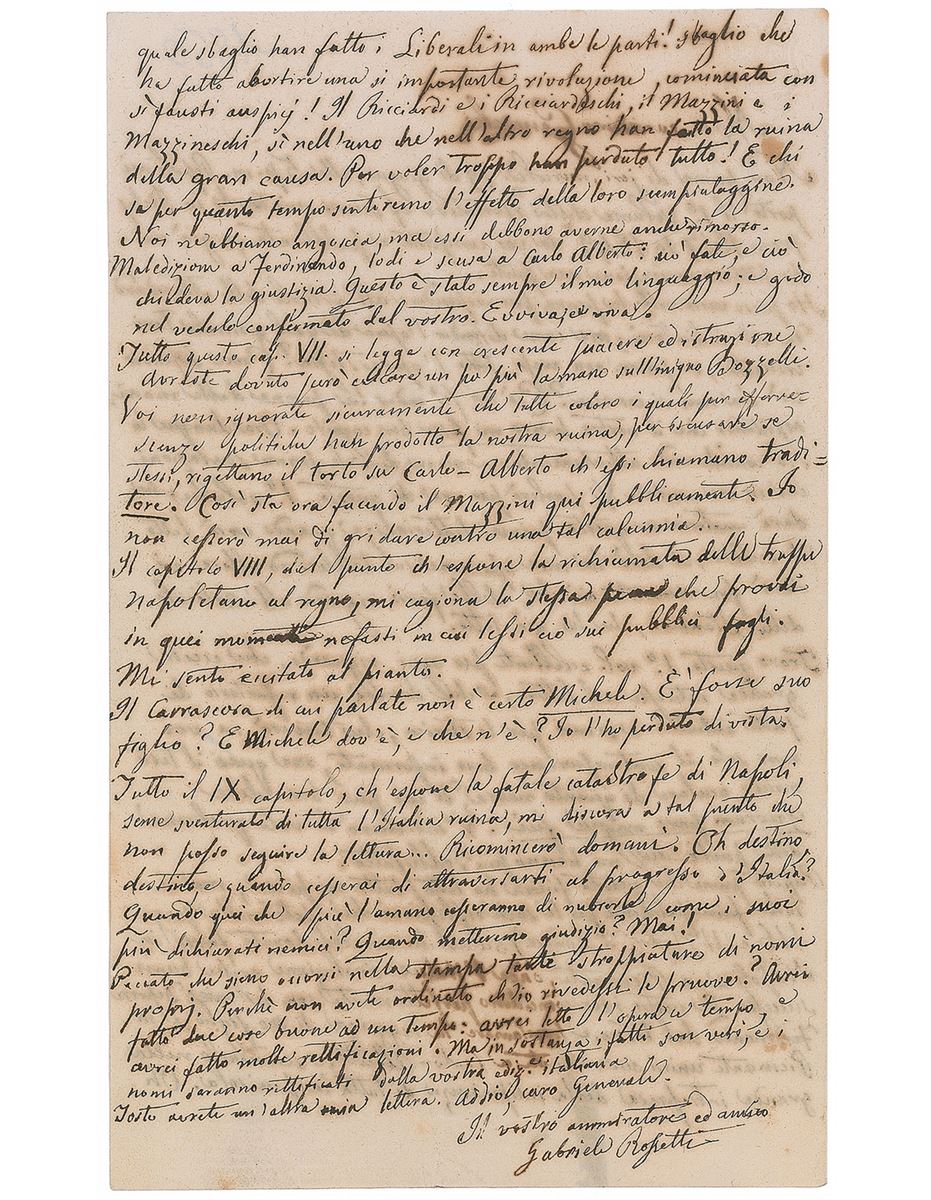 quale sbaglio han fatto i Liberali in ambe le parti! sbaglio che
ha fatto abortire una sì importante rivoluzione, cominciata con
sì fausti auspicj! Il Ricciardi e i Ricciardeschi, il Mazzini e i
Mazzineschi, sì nell'uno che nell'altro regno han fatto la ruina
della gran causa. Per voler troppo han perduto tutto! E chi
sa per quanto tempo sentiremo l'effetto della loro scempiataggine.
Noi ne abbiamo angoscia, ma essi debbono averne anche rimorso.
Maledizione a Ferdinando, lodi e scusa a Carlo Alberto: ciò fate, e ciò
chiedeva la giustizia. Questo è stato sempre il mio linguaggio; e godo
nel vederlo confermato dal vostro. Evviva, evviva.
Tutto questo cap. VII. si legge con crescente piacere ed istruzione
Avreste dovuto però calcare un po' più la mano sull'iniquo Bozzelli.
Voi non ignorate sicuramente che tutti coloro i quali per efferve-
scenze politiche han prodotto la nostra ruina, per iscusare se
stessi, rigettano il torto su Carlo-Alberto ch'essi chiamano tradi-
tore. Così sta ora facendo il Mazzini qui pubblicamente. Io
non cesserò mai di gridare contro una tal calunnia...
Il capitolo VIII, dal punto ch'espone la richiamata delle truppe
Napoletane al regno, mi cagiona la stessa che provai
in quei nefasti in cui lessi ciò sui pubblici fogli.
Mi sento eccitato al pianto.
Il Carrascosa di cui parlate non è certo Michele. E' forse suo
figlio? E Michele dov'è, e che n'è? Io l'ho perduto di vista.
Tutto il IX capitolo, ch'espone la fatale catastrofe di Napoli,
seme sventurato di tutta l'Italica ruina, mi discora a tal punto che
non posso seguire la lettura... Ricomincerò domani. Oh destino,
destino, e quando cesserai di attraversarti al progresso d'Italia?
Quando quei che più l'amano cesseranno di nuocerle come i suoi
più dichiarati nemici? Quando metteremo giudizio? Mai!
Peccato che sieno occorsi nella stampa tante stroppiature di nomi
proprj. Perchè non avete ordinato ch'io rivedessi le pruove? Avrei
fatto due cose buone ad un tempo: avrei letto l'opera a tempo, e
avrei fatto molte rettificazioni. Ma in sostanza i fatti son veri, e i
nomi saranno rettificati dalla vostra ediz.e italiana
Tosto avrete un'altra mia lettera. Addio, caro Generale.
Il vostro ammiratore ed amico
Gabriele Rossetti